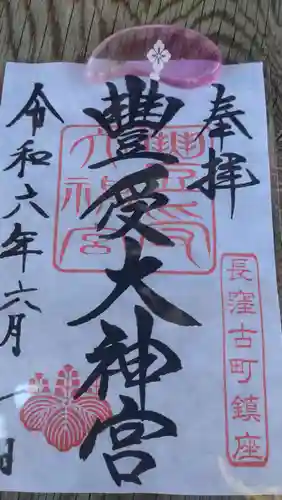 奉拝
長窪古町鎮座
豊受大神宮
令和六年六月一日